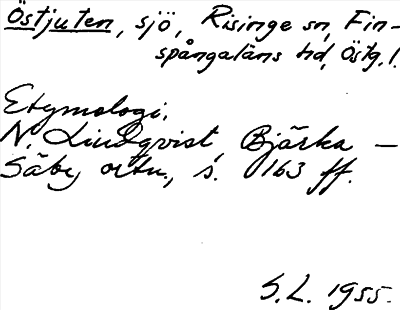 Östjuten, sjö, Risinge sn, Fin-
spångaläns hd, Östg. l.
Etymologi.
N. Lindqvist, Bjärka –
Säby ortn., s. 163 ff.
S.L. 1955.